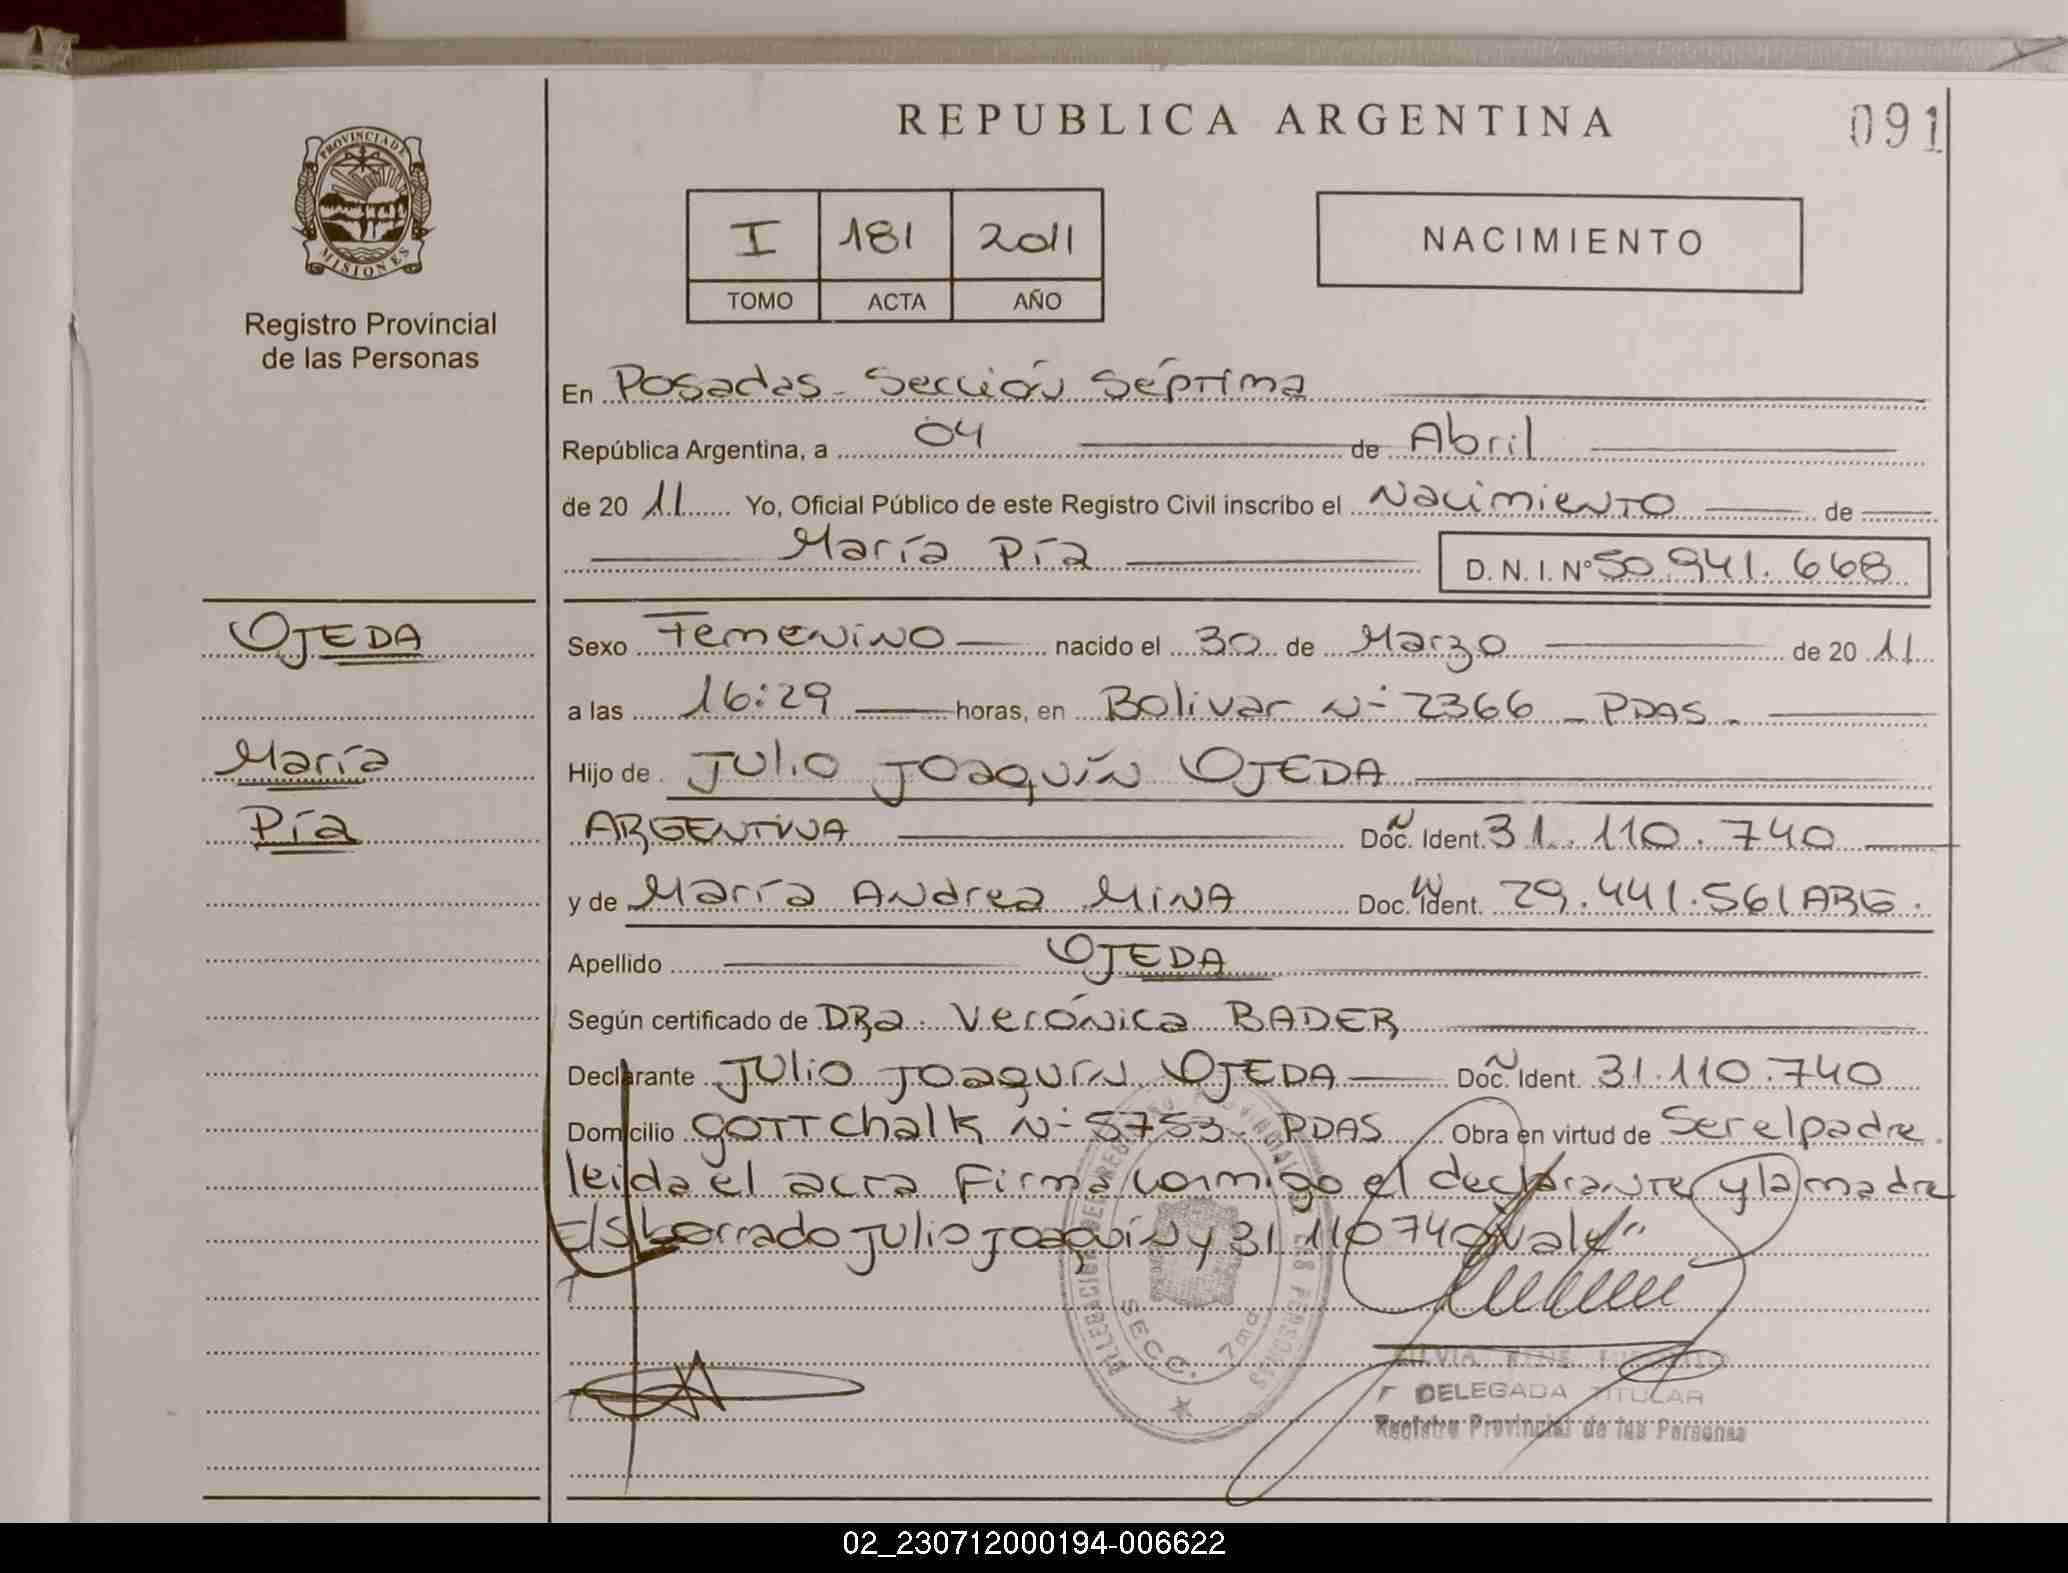 REPUBLICA ARGENTINA
091
PROVINCIA DE MISIONES
Registro Provincial
de las Personas
I 181 2011
TOMO ACTA AÑO
NACIMIENTO
En Posadas - Sección Séptima
República Argentina, a 04 de Abril
de 20 11 Yo, Oficial Público de este Registro Civil inscribo el Nacimiento de
María Pía
D. N. I. Nº 50.941.668
OJEDA
María
Pía
Sexo Femenino nacido el 30 de Marzo de 20 11
a las 16:29 horas, en Bolivar Nº 2366 - PDAS -
Hijo de Julio Joaquín OJEDA
ARGENTINA Doc. Ident. 31.110.740
y de María Andrea MINA Doc. Ident. 29.441.561 ARG.
Apellido OJEDA
Según certificado de DRa. Verónica BADER
Declarante Julio Joaquín OJEDA Doc. Ident. 31.110.740
Domicilio GOTTChalk Nº 5753 - PDAS Obra en virtud de Ser el padre.
leida el acta Firma conmigo el declarante y la madre
E/S borrado Julio Joaquín y 31.110.740 Vale"
DELEGACION REGISTRO PROVINCIAL DE LAS PERSONAS
SECC. 7ma
SILVIA
DELEGADA TITULAR
Registro Provincial de las Personas
02_230712000194-006622